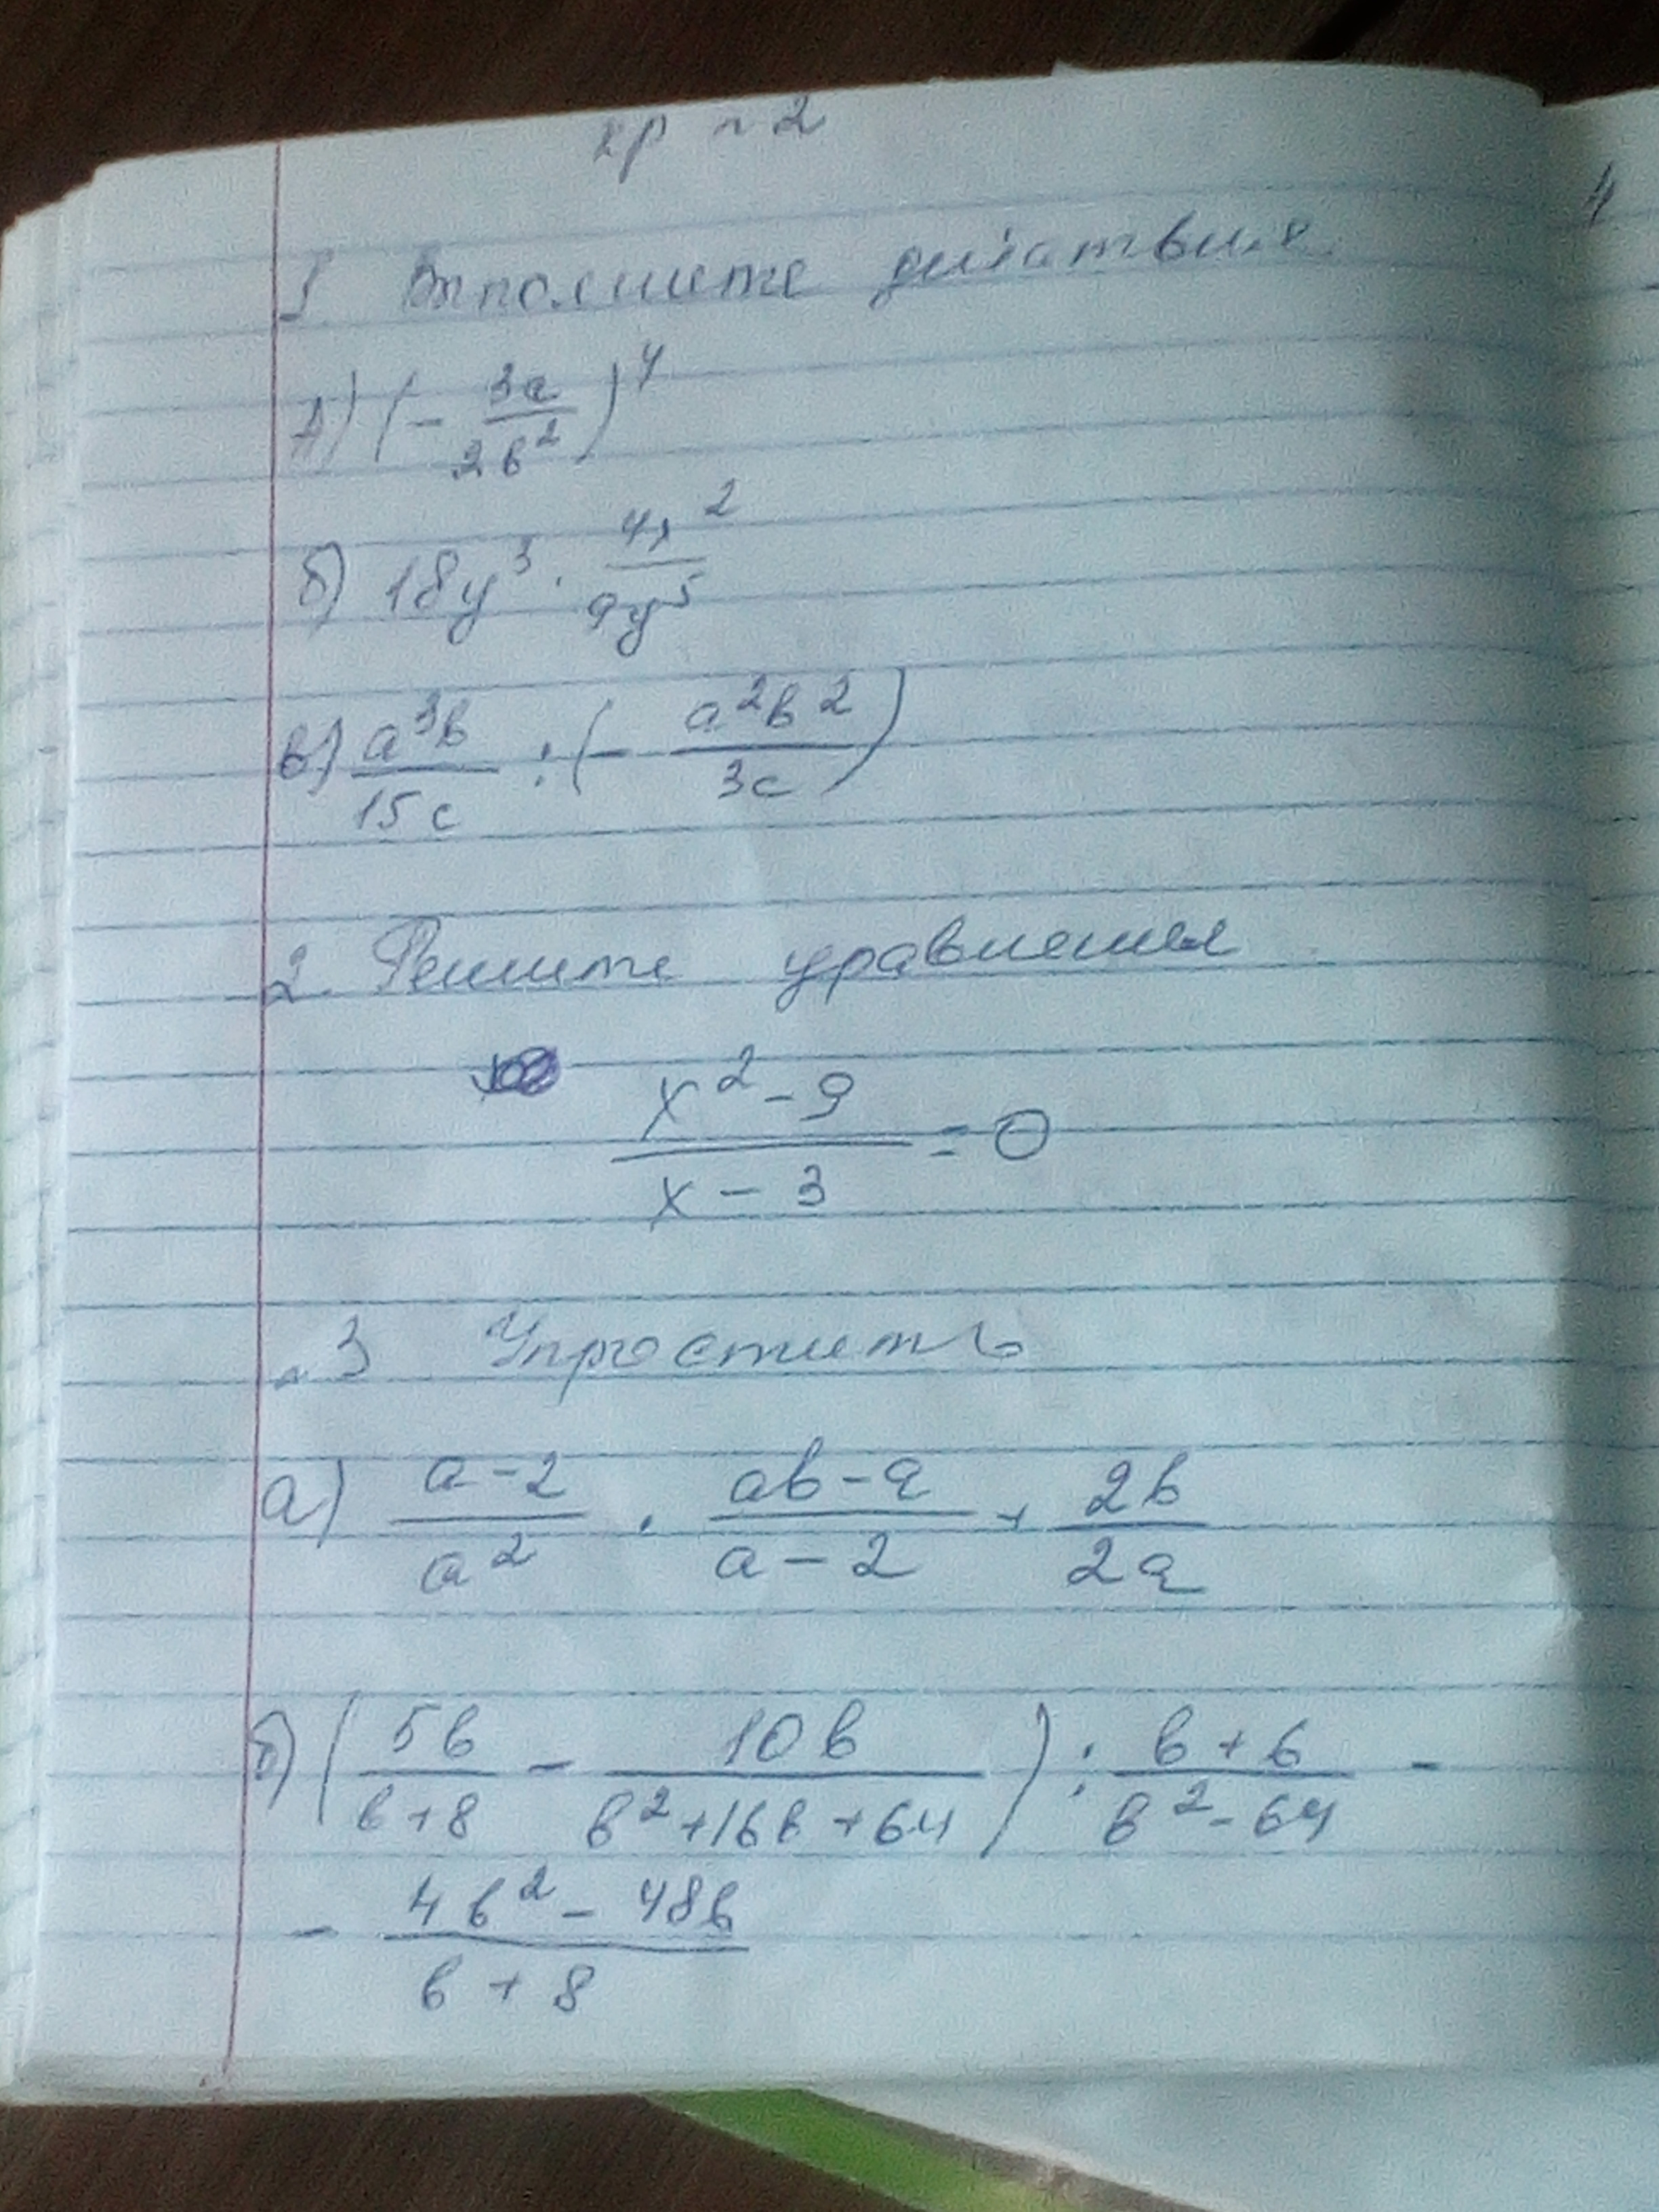 кр n 2
1 Выполните действия
а) (- 3a/2b²)⁴
б) 18y³ · 4x²/9y⁵
в) a³b/15c : (- a²b²/3c)
2. Решите уравнения
x² - 9 / x - 3 = 0
n 3 Упростить
а) a-2/a² · ab-a/a-2 + 2b/2a
б) (5b/b+8 - 10b/b²+16b+64) : b+6/b²-64 -
- 4b² - 48b / b + 8